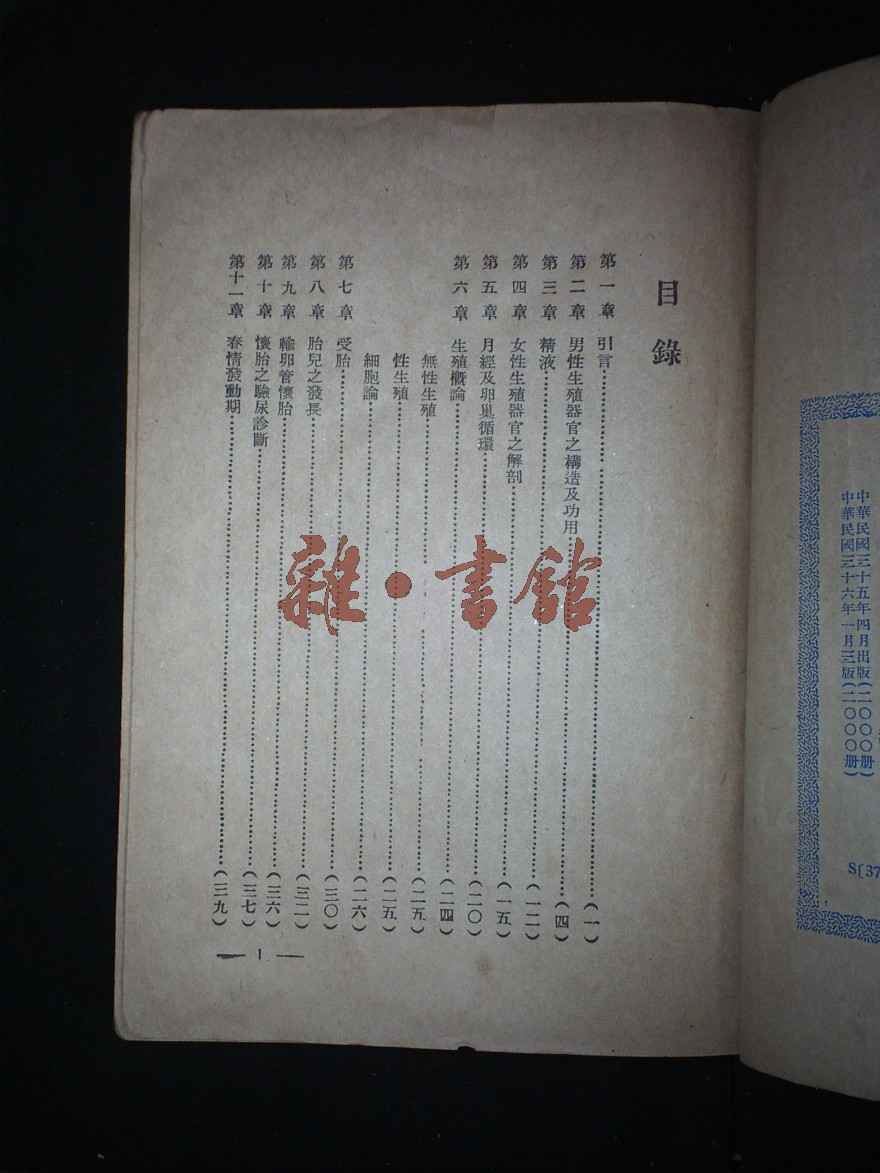 中華民國三十五年四月出版(二〇〇〇册)
中華民國三十六年一月三版(二〇〇〇册)
S〔37
目錄
第一章 引言(一)
第二章 男性生殖器官之構造及功用(四)
第三章 精液(一二)
第四章 女性生殖器官之解剖(一五)
第五章 月經及卵巢循環(二〇)
第六章 生殖概論(二四)
無性生殖(二五)
性生殖(二五)
細胞論(二六)
第七章 受胎(三〇)
第八章 胎兒之發長(三二)
第九章 輸卵管懷胎(三六)
第十章 懷胎之驗尿診斷(三七)
第十一章 春情發動期(三九)
— 1 —
雜·書館